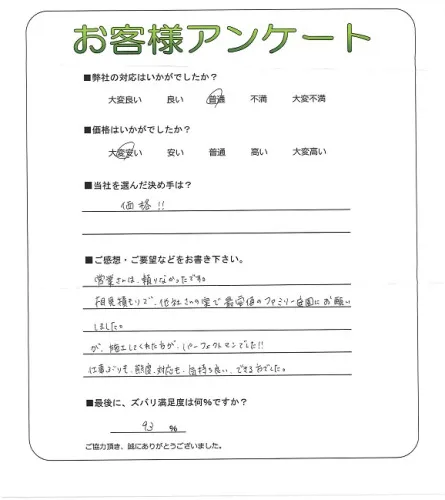 お客様アンケート
■弊社の対応はいかがでしたか?
大変良い 良い 普通 不満 大変不満
■価格はいかがでしたか?
大変安い 安い 普通 高い 大変高い
■当社を選んだ決め手は?
価格!!
■ご感想・ご要望などをお書き下さい。
営業さんは、頼りなかったです。
相見積もりで、他社さんの案で最安値のファミリー庭園にお願い
しました。
が、施工してくれた方が、パーフェクトマンでした!!
仕事ぶりも、態度、対応も、気持ち良い、できる方でした。
■最後に、ズバリ満足度は何%ですか?
93 %
ご協力頂き、誠にありがとうございました。